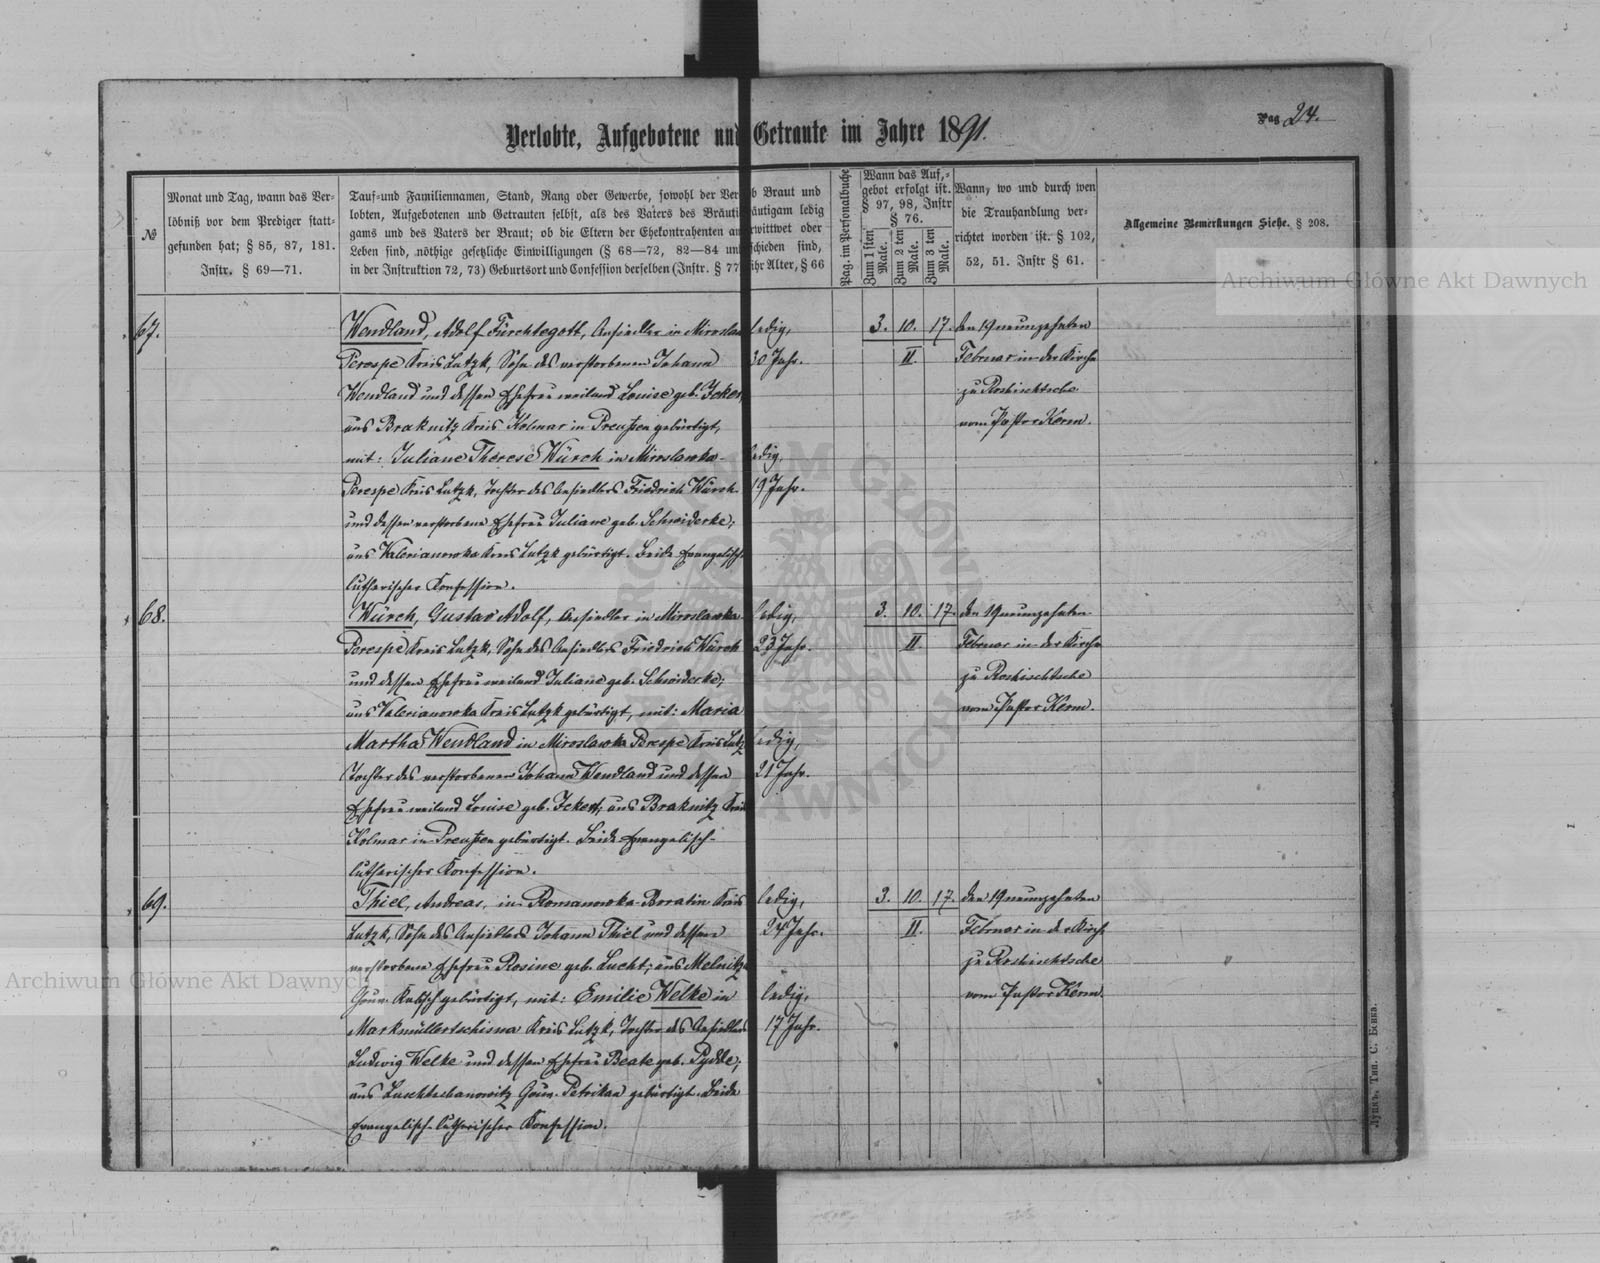 Pag. 24.
Verlobte, Aufgebotene und Getraute im Jahre 1891.
№
Monat und Tag, wann das Ver-
löbniß vor dem Prediger statt-
gefunden hat; § 85, 87, 181.
Instr. § 69—71.
Tauf- und Familiennamen, Stand, Rang oder Gewerbe, sowohl der Ver
lobten, Aufgebotenen und Getrauten selbst, als des Vaters des Bräuti
gams und des Vaters der Braut; ob die Eltern der Ehekontrahenten an
Leben sind, nöthige gesetzliche Einwilligungen (§ 68—72, 82—84 un
in der Instruktion 72, 73) Geburtsort und Confession derselben (Instr. § 77
b Braut und
äutigam ledig
rwittwet oder
schieden sind,
ihr Alter, § 66
Pag. im Personalbuche
Wann das Auf-
gebot erfolgt ist.
§ 97, 98, Instr
§ 76.
Zum 1 sten Male.
Zum 2 ten Male.
Zum 3 ten Male.
Wann, wo und durch wen
die Trauhandlung ver-
richtet worden ist. § 102,
52, 51. Instr § 61.
Allgemeine Bemerkungen Siehe. § 208.
67.
Wendland, Adolf Fürchtegott, Ansiedler in Miroslaw
Perespe Kreis Lutzk, Sohn des verstorbenen Johann
Wendland und dessen Ehefrau weiland Louise geb. Ickert,
aus Braknitz Kreis Kolmar in Preußen gebürtigt,
mit: Juliane Therese Würch in Miroslawka-
Perespe Kreis Lutzk, Tochter des Ansiedlers Friedrich Würch
und dessen verstorbene Ehefrau Juliane geb. Schwiderke;
aus Valerianowka Kreis Lutzk gebürtigt. Beide Evangelisch-
lutherischer Konfession.
ledig,
30 Jahr.
ledig,
19 Jahr.
3. 10. 17.
II.
den 19 neunzehnten
Februar in der Kirche
zu Roschischtsche
vom Pastor Kerm.
68.
Würch, Gustav Adolf, Ansiedler in Miroslawka
Perespe Kreis Lutzk, Sohn des Ansiedlers Friedrich Würch
und dessen Ehefrau weiland Juliane geb. Schwiderke;
aus Valerianowka Kreis Lutzk gebürtigt, mit: Maria
Martha Wendland in Miroslawka Perespe Kreis Lutz
Tochter des verstorbenen Johann Wendland und dessen
Ehefrau weiland Louise geb. Ickert; aus Braknitz Kreis
Kolmar in Preußen gebürtigt. Beide Evangelisch-
lutherischer Konfession.
ledig,
23 Jahr.
ledig,
21 Jahr.
3. 10. 17.
II.
den 19 neunzehnten
Februar in der Kirche
zu Roschischtsche
vom Pastor Kerm.
69.
Thiel, Andreas, in Romanowka-Borratin Kreis
Lutzk, Sohn des Ansiedlers Johann Thiel und dessen
verstorbene Ehefrau Rosine geb. Lucht; aus Melnitz
Gouv. Kalisch gebürtigt, mit: Emilie Welke in
Markmüllertschisna Kreis Lutzk, Tochter des Ansiedlers
Ludwig Welke und dessen Ehefrau Beate geb. Pydde;
aus Luschtschanowitz Gouv. Petrikau gebürtigt. Beide
Evangelisch-lutherischer Konfession.
ledig,
24 Jahr.
ledig,
17 Jahr.
3. 10. 17.
II.
den 19 neunzehnten
Februar in der Kirche
zu Roschischtsche
vom Pastor Kerm.
Луцкъ, Тип. С. Бенка.
Archiwum Główne Akt Dawnych
Archiwum Główne Akt Dawnych